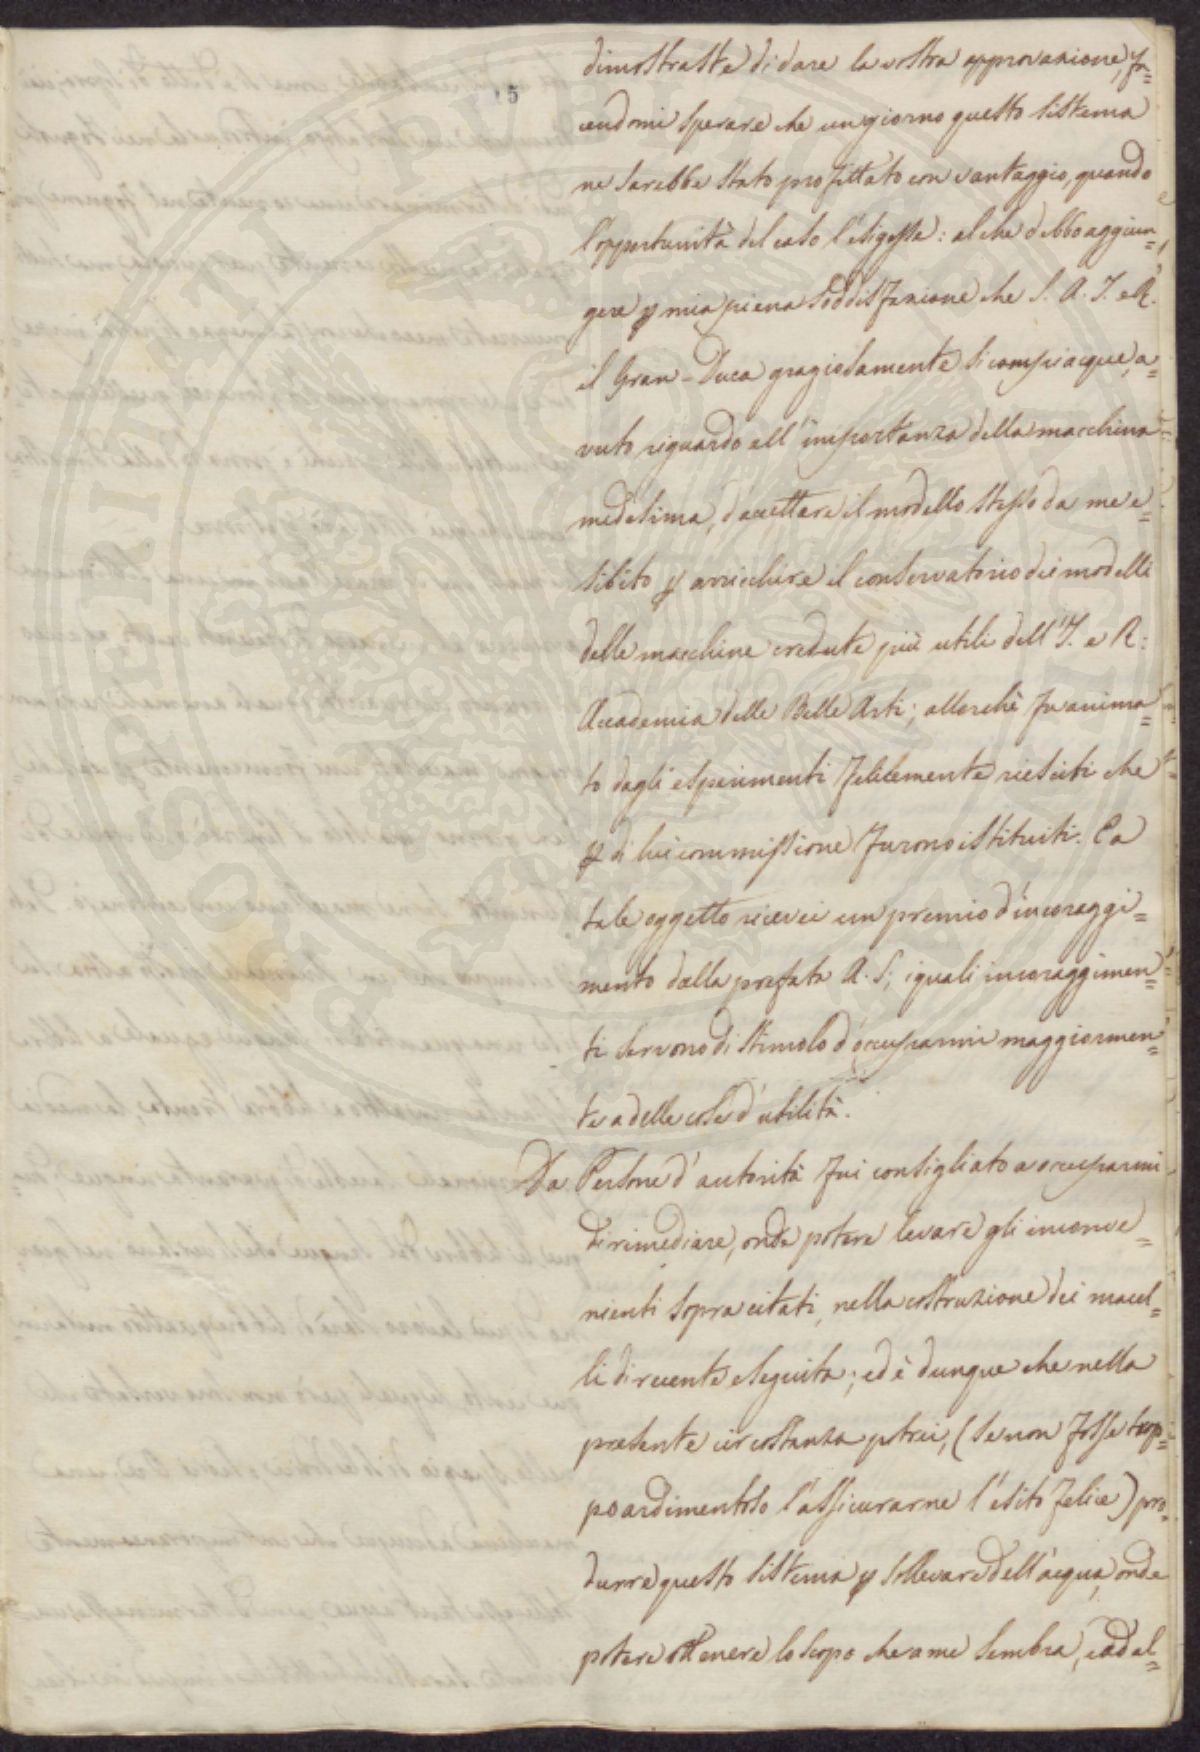 15
dimostraste di dare la vostra approvazione, fa=
cendomi sperare che un giorno questo sistema
ne sarebbe stato profittato con vantaggio, quando
l'opportunità del caso l'esigesse: al che debbo aggiun=
gere p mia piena soddisfazione che S. A. I. e R.
il Gran-Duca graziosamente si compiacque, a=
vuto riguardo all'importanza della macchina
medesima, d'accettare il modello stesso da me e=
sibito p arricchire il conservatorio dei modelli
delle macchine credute più utili dell'I. e R:
Accademia delle Belle Arti; allorchè fu anima=
to dagli esperimenti felicemente riesciti che
p di lui commissione furono istituiti. E a
tale oggetto ricevei un premio d'incoraggi=
mento dalla prefata A. S; i quali incoraggimen=
ti servono di stimolo d'occuparmi maggiormen=
te a delle cose d'utilità.
Da Persone d'autorità fui consigliato a occuparmi
di rimediare, onde potere levare gli inconve=
nienti sopra citati, nella costruzione dei macel=
li di recente eseguita; ed è dunque che nella
presente circostanza potrei, (se non fosse trop=
po ardimentoso l'assicurarne l'esito felice) pro=
durre questo sistema p sollevare dell'acqua, onde
potere ottenere lo scopo che a me sembra, ead al=